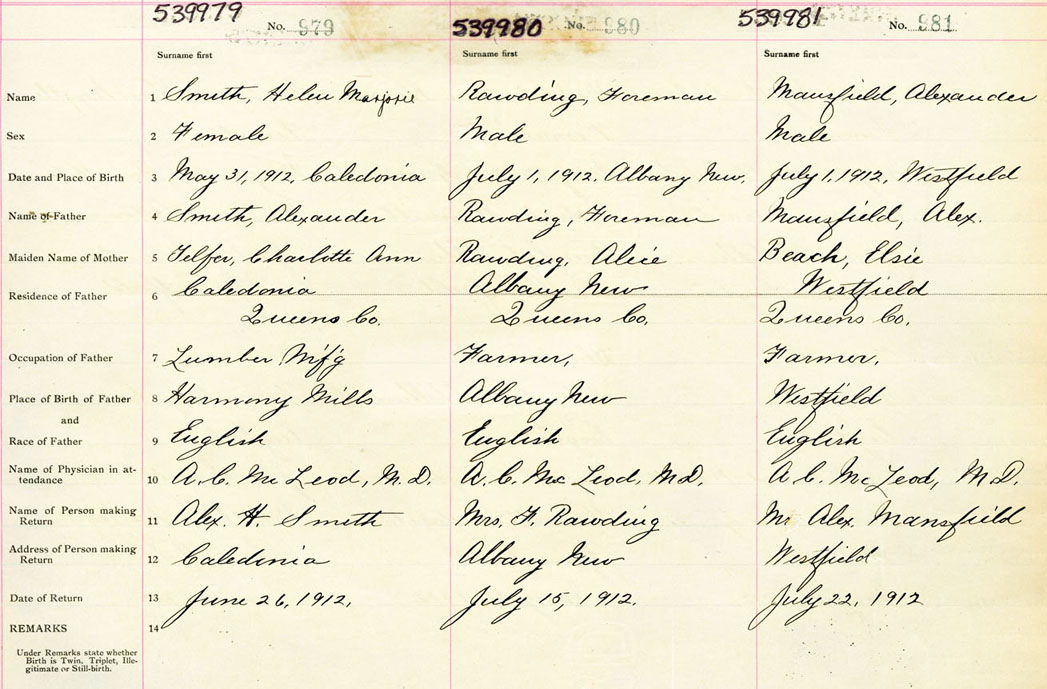 539979 No. 979 539980 No. 980 539981 No. 981
Surname first Surname first Surname first
Name 1 Smith, Helen Marjorie Rawding, Foreman Mansfield, Alexander
Sex 2 Female Male Male
Date and Place of Birth 3 May 31, 1912, Caledonia July 1, 1912. Albany New. July 1, 1912, Westfield
Name of Father 4 Smith, Alexander Rawding, Foreman Mansfield, Alex.
Maiden Name of Mother 5 Telfer, Charlotte Ann Rawding, Alice Beach, Elsie
Residence of Father 6 Caledonia Albany New Westfield
Queens Co. Queens Co. Queens Co.
Occupation of Father 7 Lumber Mf'g Farmer, Farmer,
Place of Birth of Father 8 Harmony Mills Albany New Westfield
and
Race of Father 9 English English English
Name of Physician in at-
tendance 10 A. C. McLeod, M.D. A. C. McLeod, M.D. A. C. McLeod, M.D.
Name of Person making
Return 11 Alex. H. Smith Mrs. F. Rawding Mr Alex. Mansfield
Address of Person making
Return 12 Caledonia Albany New Westfield
Date of Return 13 June 26, 1912, July 15, 1912. July 22, 1912
REMARKS 14
Under Remarks state whether
Birth is Twin, Triplet, Ille-
gitimate or Still-birth.